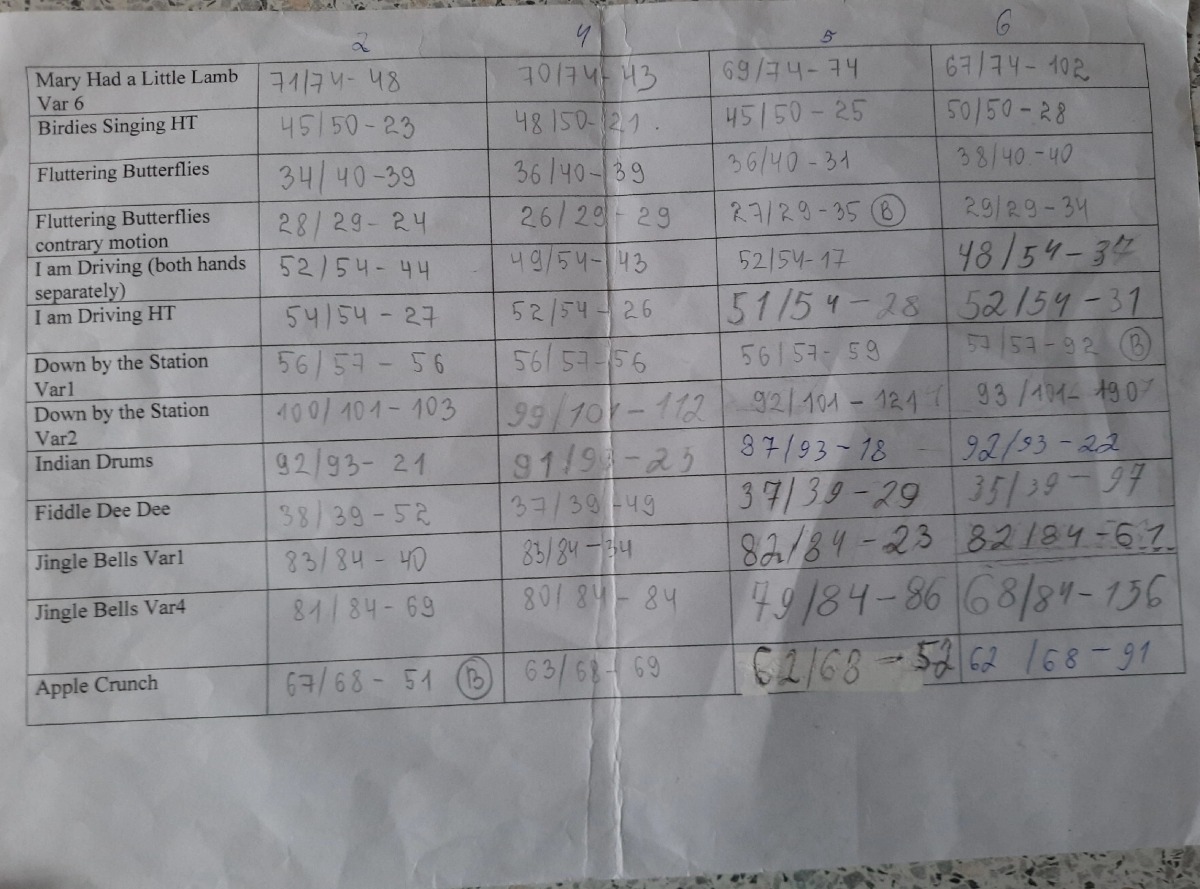 2 4 5 6
Mary Had a Little Lamb 71/74- 48 70/74- 43 69/74- 74 67/74- 102
Var 6
Birdies Singing HT 45/50- 23 48/50- 21. 45/50- 25 50/50- 28
Fluttering Butterflies 34/40-39 36/40- 39 36/40- 31 38/40-40
Fluttering Butterflies 28/29- 24 26/29- 29 27/29-35 B 29/29- 34
contrary motion
I am Driving (both hands 52/54- 44 49/54- 43 52/54-17 48/54-
separately)
I am Driving HT 54/54 - 27 52/54- 26 51/54 - 28 52/54-31
Down by the Station 56/57 - 56 56/57-56 56/57- 59 57/57-92 B
Var1
Down by the Station 100/101- 103 99/101- 112 92/101 - 121 93/101-
Var2
Indian Drums 92/93- 21 91/93- 87/93 - 18 92/93 - 22
Fiddle Dee Dee 38/39 - 52 37/39 -49 37/39 - 29 35/39 - 97
Jingle Bells Var1 83/84 - 40 83/84 - 34 82/84 - 23 82/84 - 61
Jingle Bells Var4 81/84- 69 80/84 - 84 79/84 - 86 68/84- 156
Apple Crunch 67/68 - 51 B 63/68- 69 62/68 - 52 62 /68 - 91